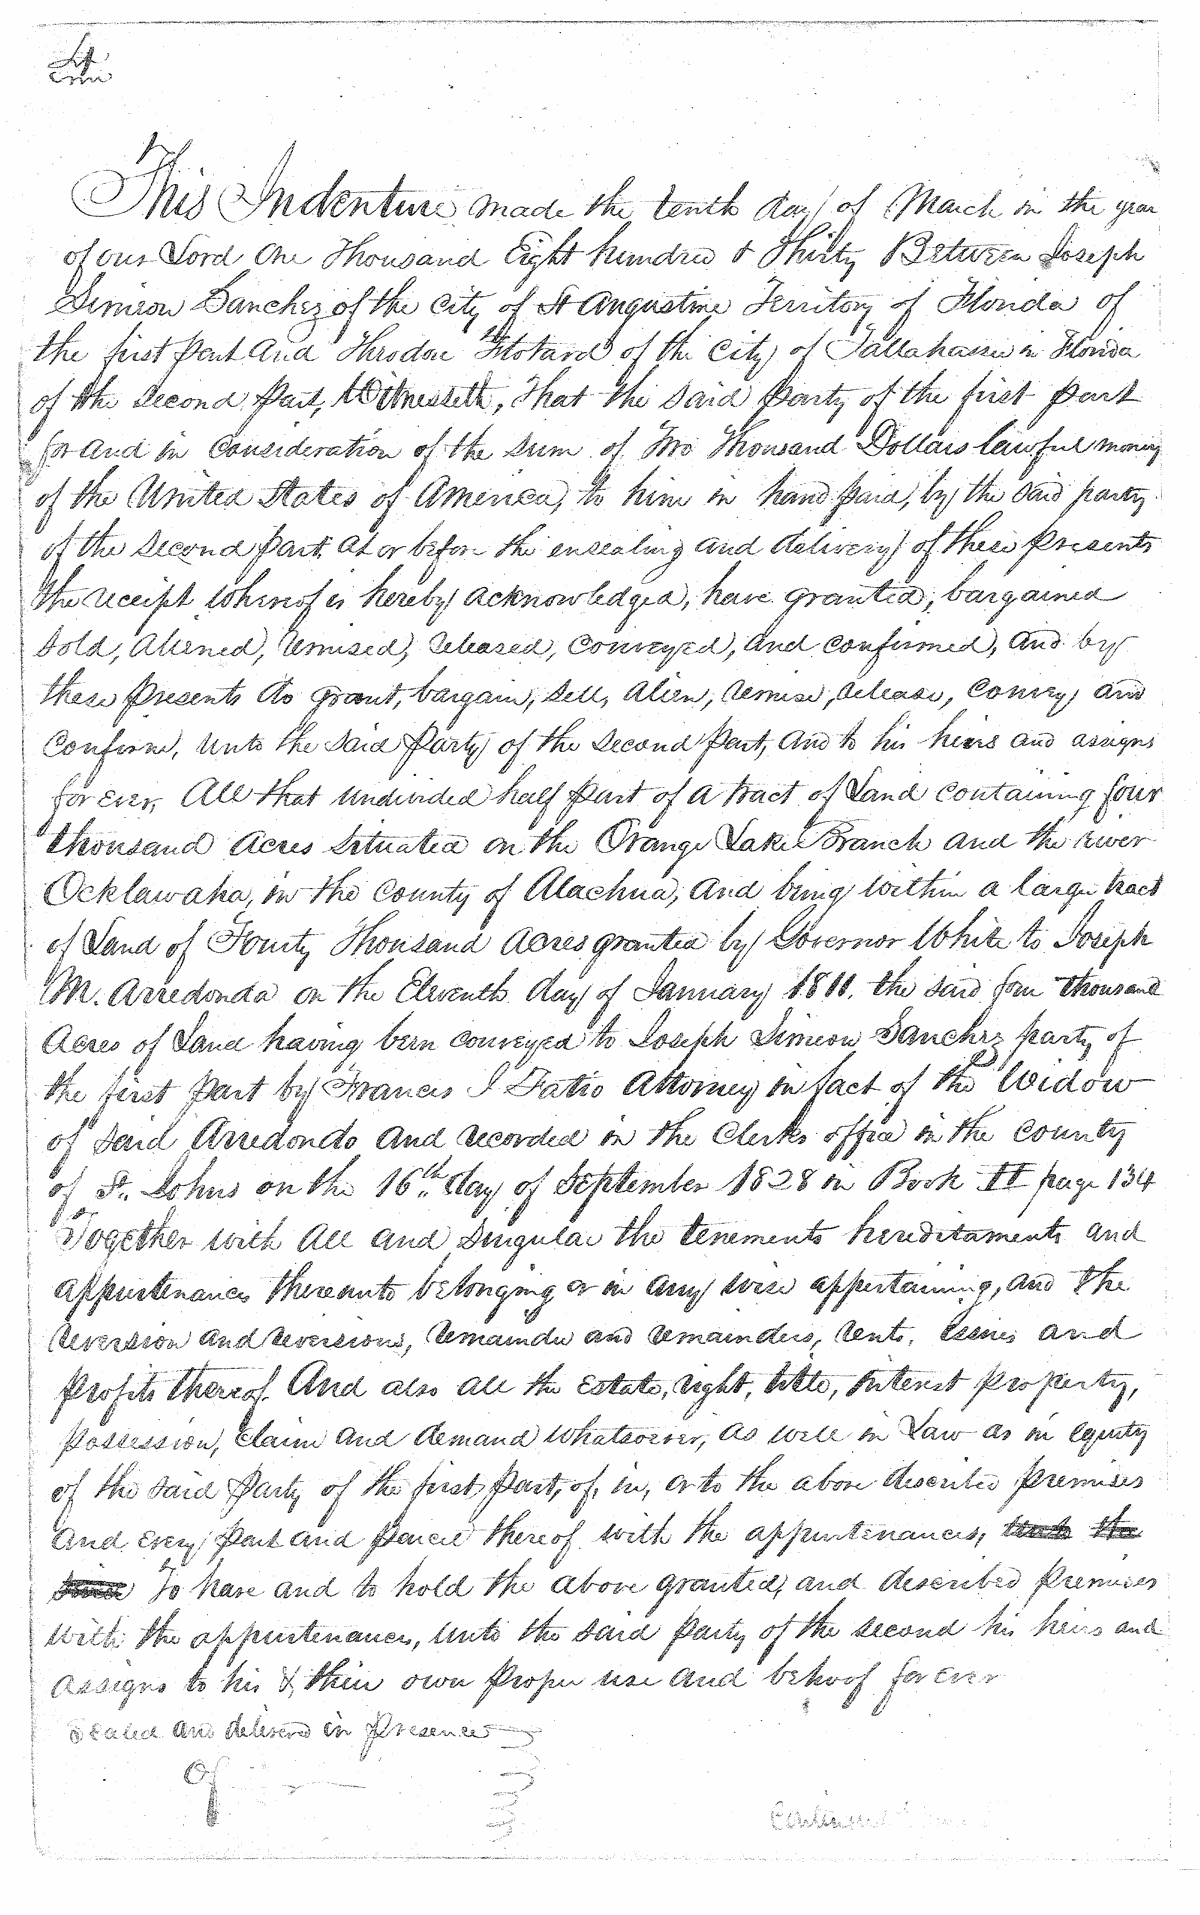 This Indenture made the tenth day of March in the year
of our Lord One Thousand Eight hundred & Thirty Between Joseph
Simeon Sanchez of the City of St Augustine Territory of Florida of
the first Part And Theodore Flotard of the City of Tallahassee in Florida
of the Second Part, Witnesseth, That the Said Party of the first Part
for and in Consideration of the Sum of Two Thousand Dollars lawful money
of the United States of America, to him in hand paid, by the Said party
of the Second Part, At or before the ensealing and delivery of these Presents
the receipt whereof is hereby acknowledged, have granted, bargained
Sold, Aliened, remised, released, Conveyed, and confirmed, and by
these Presents do grant, bargain, sell, Alien, remise, release, Convey and
Confirm, Unto the Said Party of the Second Part, And to his heirs and assigns
for Ever, All that undivided half Part of a tract of Land containing four
thousand Acres Situated on the Orange Lake Branch and the river
Ocklawaha, in the County of Alachua, And being within a large tract
of Land of Fourty Thousand Acres granted by Governor White to Joseph
M. Arredonda on the Eleventh day of January 1811. the said four thousand
Acres of Land having been conveyed to Joseph Simeon Sanchez party of
the first Part by Francis J Fatio Attorney in fact of the Widow
of Said Arredondo And recorded in the Clerks office in the County
of St. Johns on the 16th day of September 1828 in Book II page 134
Together with All and Singular the tenements hereditaments and
appurtenances thereunto belonging or in any wise appertaining, and the
reversion and reversions, remainder and remainders, rents, issues and
Profits thereof. And also all the Estate, right, title, interest Property,
Possession, Claim and demand whatsoever, as well in Law as in equity
of the Said Party of the first Part, of, in, or to the above described premises
And Every Part and Parcel thereof with the appurtenances,
To have and to hold the above granted, and described Premises
with the appurtenances, Unto the Said Party of the Second his heirs and
Assigns to his & their own Proper use and behoof for Ever
Sealed and delivered in Presence
Of
Continued